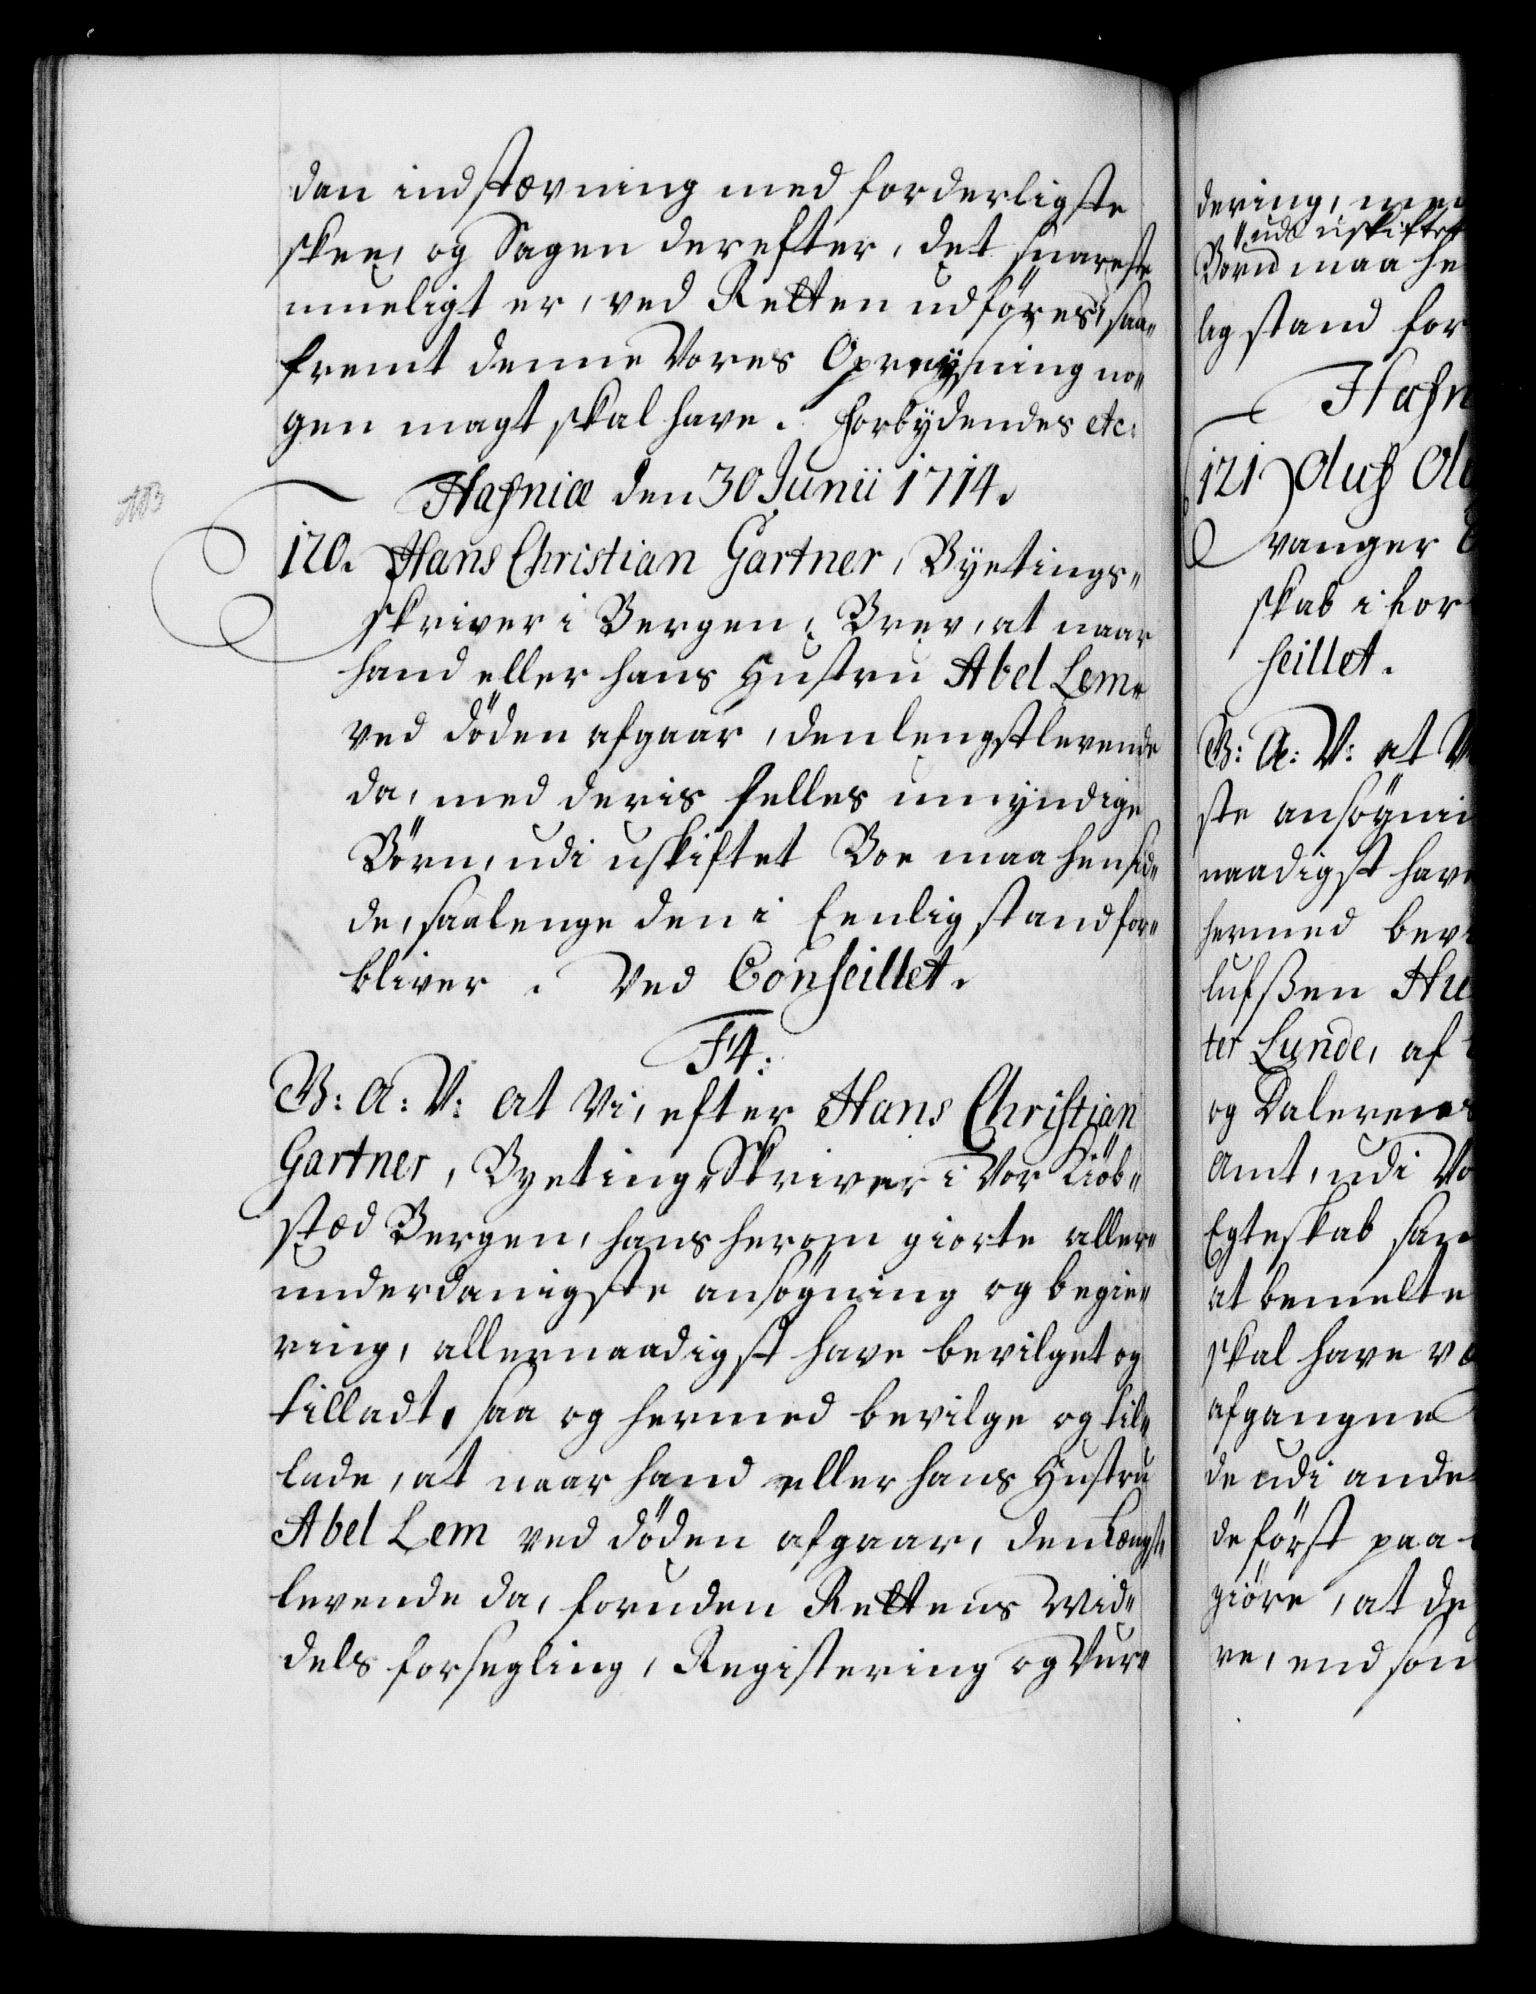 dan indstævning med forderligste
skee, og Sagen derefter, det snareste
mueligt er, ved Retten udføres, saa„
fremt denne Vores Opreysning no„
gen magt skal have. Forbydendes etc:
Hafniæ den 30 Junii 1714.
120. Hans Christian Gartner, Byetings„
skriver i Bergen, Brev, at naar
hand eller hans Hustru Abel Lem„
ved döden afgaar, den lengstlevende
da, med deris felles umyndige
Börn, udi uskiftet Boe maa hensid„
de, saalenge den i Eenlig stand for„
bliver. Ved Conseillet.
F4:
G: A: V: at Vi, efter Hans Christian
Gartner, Byetings Skriver i Vor Kiöb„
stæd Bergen, hans herom giorte aller„
underdanigste ansögning og begie„
ring, allernaadigst have bevilget og
tilladt, saa og hermed bevilge og til„
lade, at naar hand eller hans Hustru
Abel Lem ved döden afgaar, den Længst„
levende da, foruden Rettens Mid„
dels forsegling, Registering og Vur„
dering, med
udi uskiftet
Börn maa he
lig stand for
Hafn
121 Oluf Ol
vanger
skab i For
seillet.
G: A: V: at V
ste ansögni
naadigst have
hermed bev
lufßen Hu
ter Lunde, af
og Dalernes
Amt, udi Vo
Egteskab sam
at bemelte
skal have væ
afgangne
de udi ande
de först paa
giöre, at de
re, end som